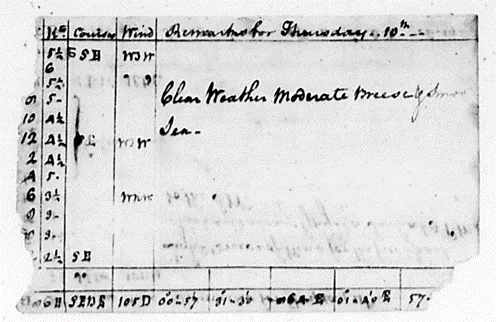 Kts Courses Wind Remarks for Thursday. 10th
5½ S E WSW
6
5½ " "
5 - Clear Weather Moderate Breese & Smoo
10 4½ Sea -
12 4½ WSW
2 4½
4 5 -
6 3½ WNW
3 -
3 -
2½ S E
SEBE 105D 00-57 01-30 01-40 E 57